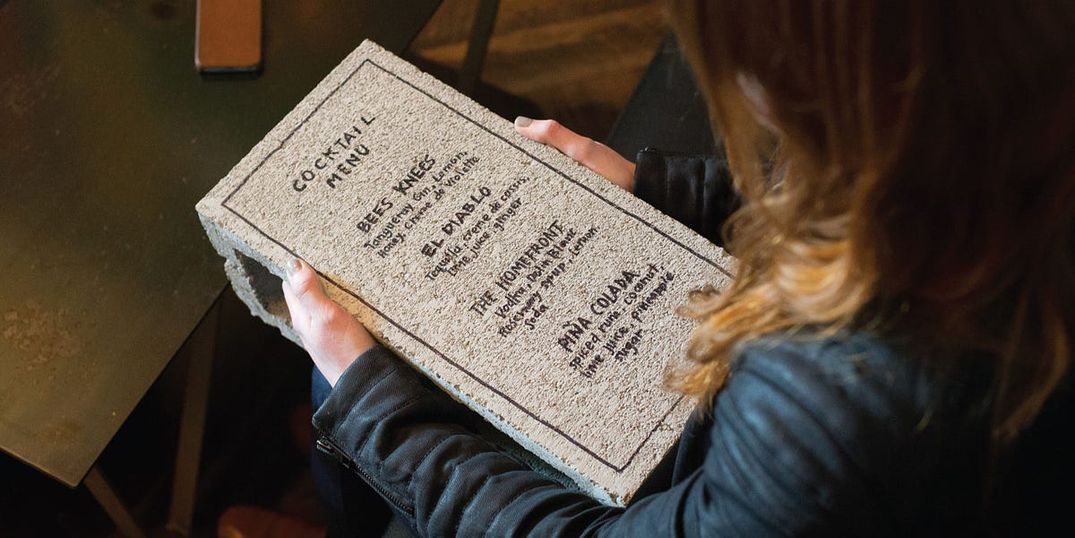 COCKTAIL
MENU
BEES KNEES
Tangueray Gin, Lemon,
Honey creme de Violette
EL DIABLO
Tequila creme de cassis,
Lime juice, ginger
THE HOMEFRONT
Vodka,
Rosemary syrup, Lemon
Soda
PIÑA COLADA
spiced rum coconut,
Lime juice, pineapple